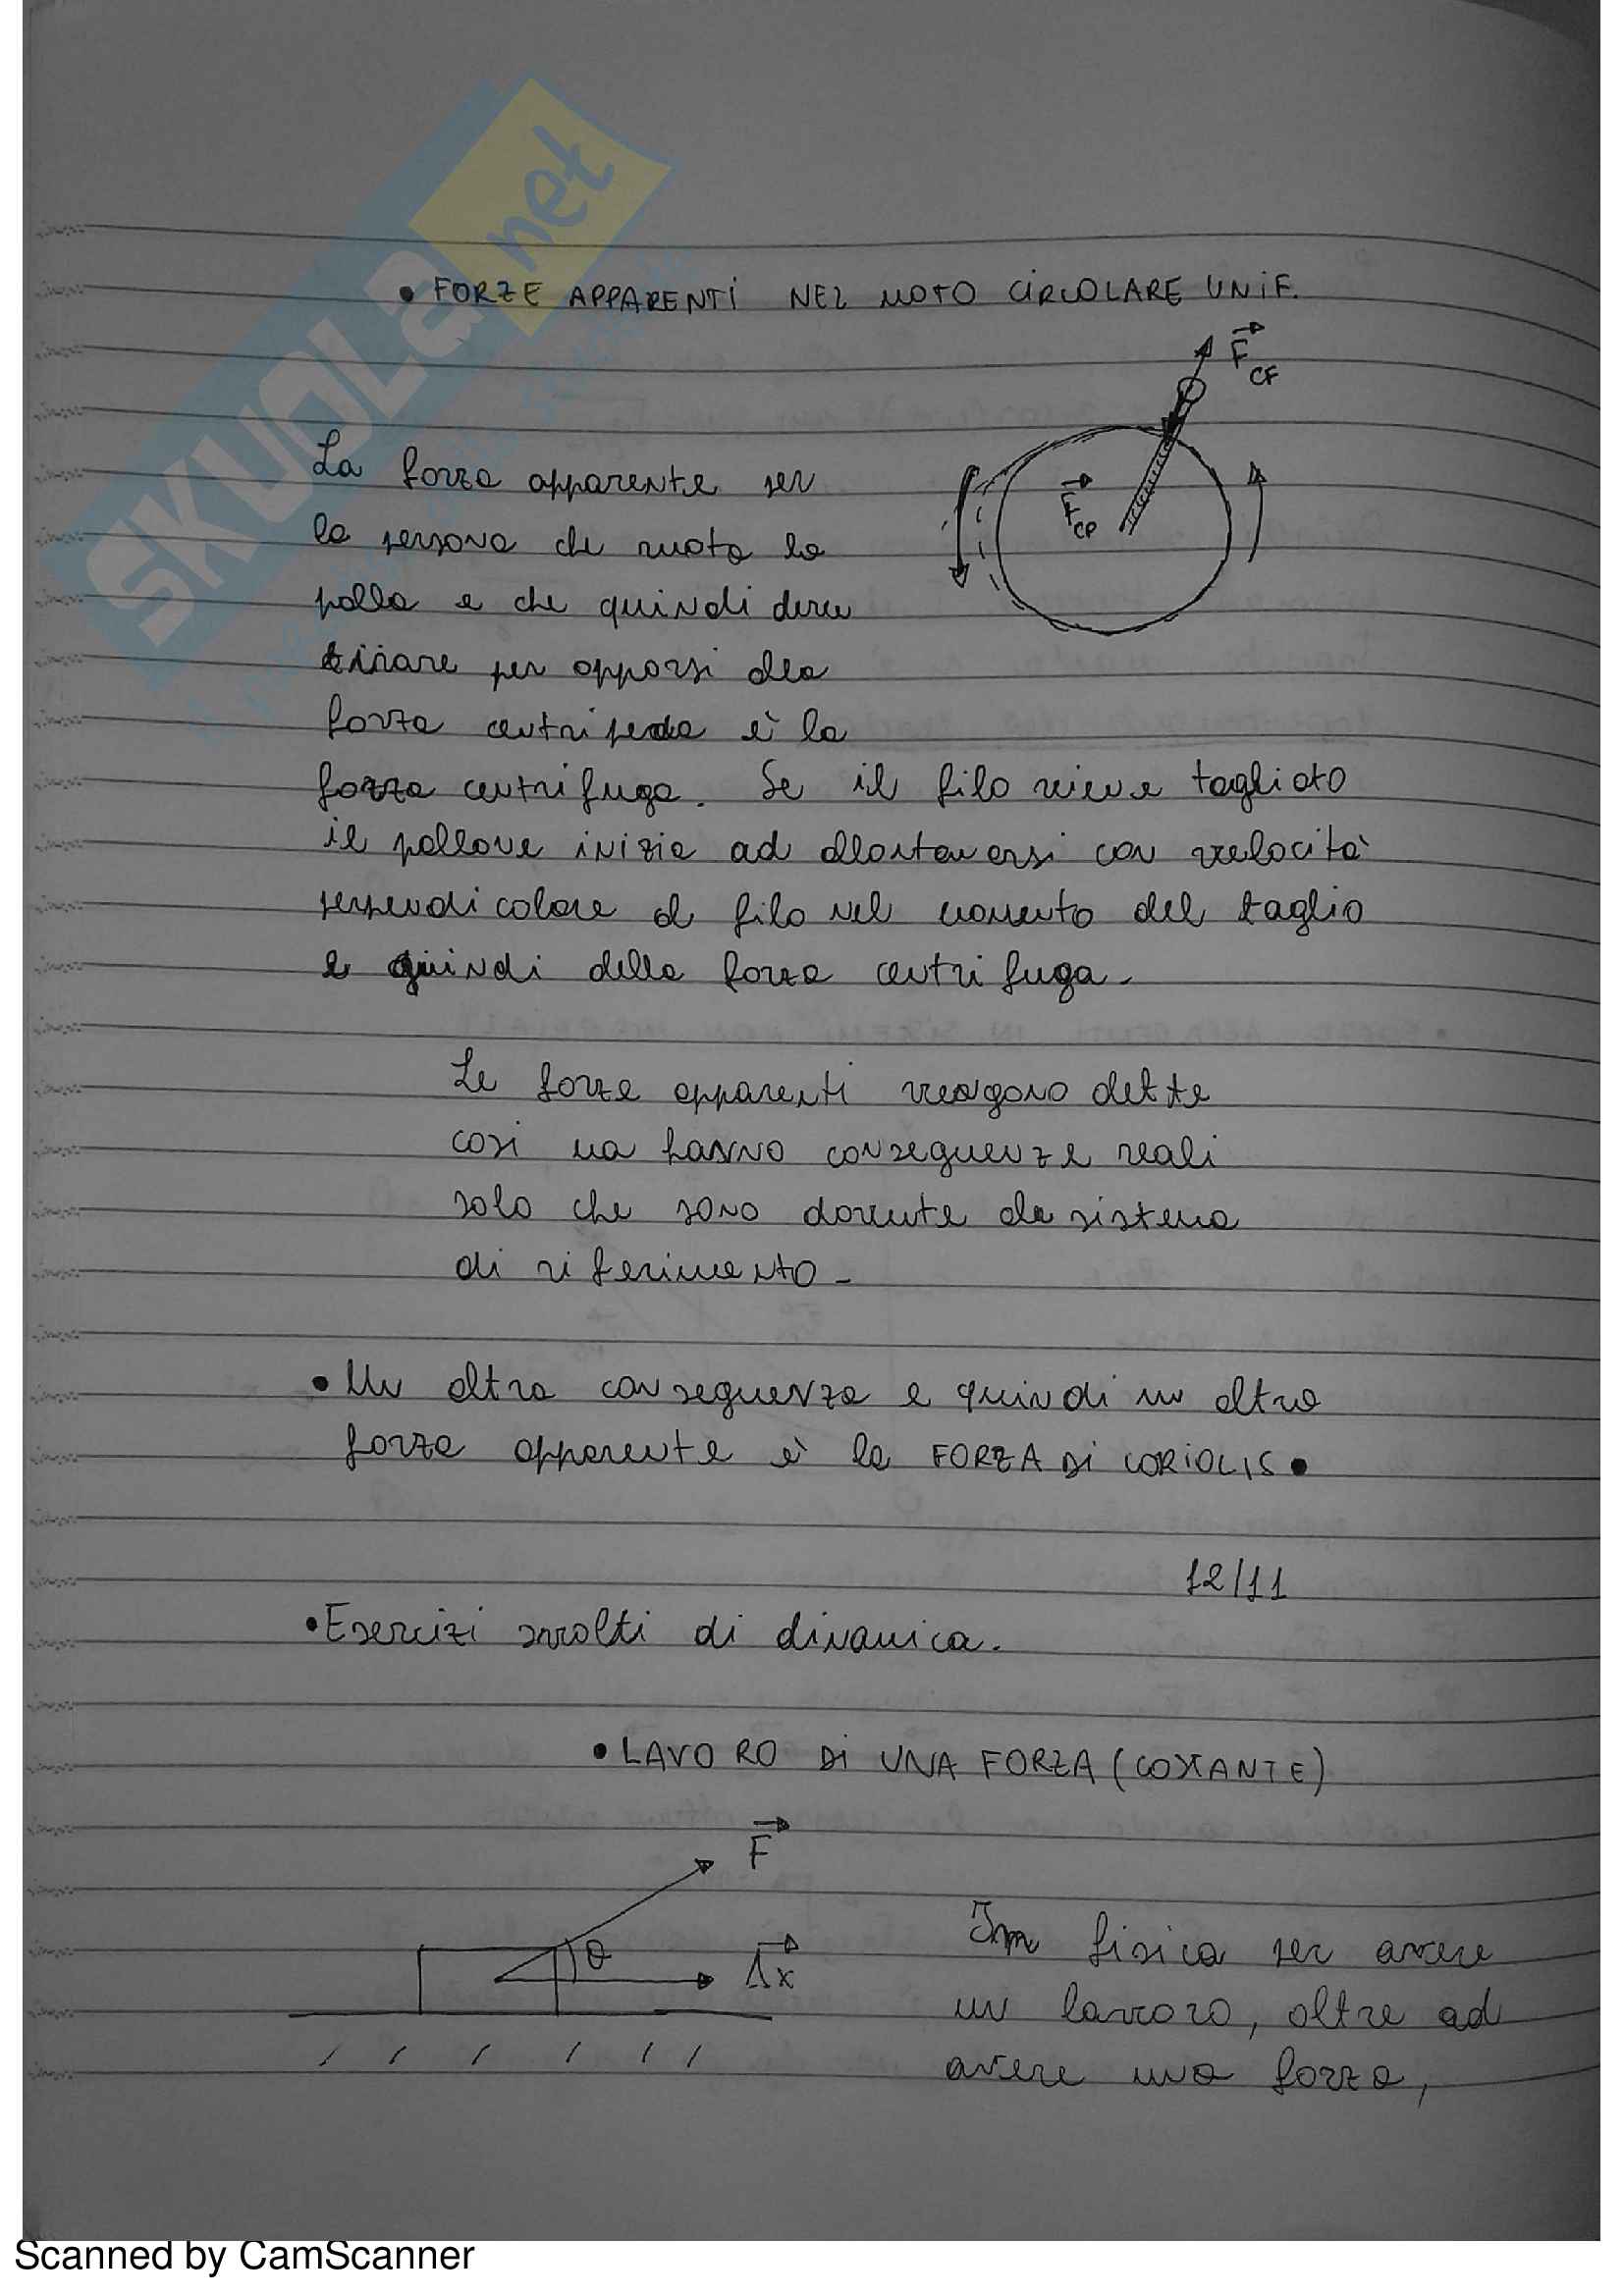 SKUOLA.net
• FORZE APPARENTI NEL MOTO CIRCOLARE UNIF.
F CF
La forza apparente per
F CP
la persona che ruota la
palla e che quindi deve
tirare per opporsi alla
forza centripeda è la
forza centrifuga. Se il filo viene tagliato
il pallone inizia ad allontanarsi con velocità
perpendicolare al filo nel momento del taglio
e quindi della forza centrifuga.
Le forze apparenti vengono dette
così ma hanno conseguenze reali
solo che sono dovute da sistema
di riferimento.
• Un altra conseguenza e quindi un altra
forza apparente è la FORZA DI CORIOLIS •
12/11
• Esercizi svolti di dinamica.
• LAVORO DI UNA FORZA (COSTANTE)
F
θ
Δx
Im fisica per avere
un lavoro, oltre ad
avere una forza,
Scanned by CamScanner